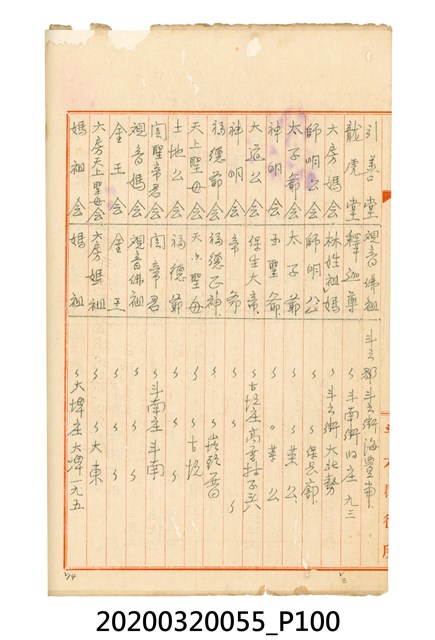 引善堂 観音佛祖 斗六郡斗六街海豊崙
龍虎堂 釋迦尊 〃斗南街旧庄九三
六房媽会 林姓祖媽 〃斗六街大北勢
師明公会 師明公 〃 〃保長廍
太子爺会 太子爺 〃 〃菜公
神明会 玉聖爺 〃 〃菜公
大道公会 保生大帝 〃古坑庄高厝林子头
神明会 帝爺 〃 〃 〃
福德爺会 福德正神 〃 〃崁頭厝
天上聖母会 天上聖母 〃 〃古坑
土地公会 福德爺 〃 〃 〃
関聖帝君会 関帝君 〃斗南庄斗南
観音媽会 観音佛祖 〃 〃 〃
金王会 金王 〃 〃 〃
六房天上聖母会 六房媽祖 〃 〃大東
媽祖会 媽祖 〃大埤庄大埤一九五
20200320055_P100